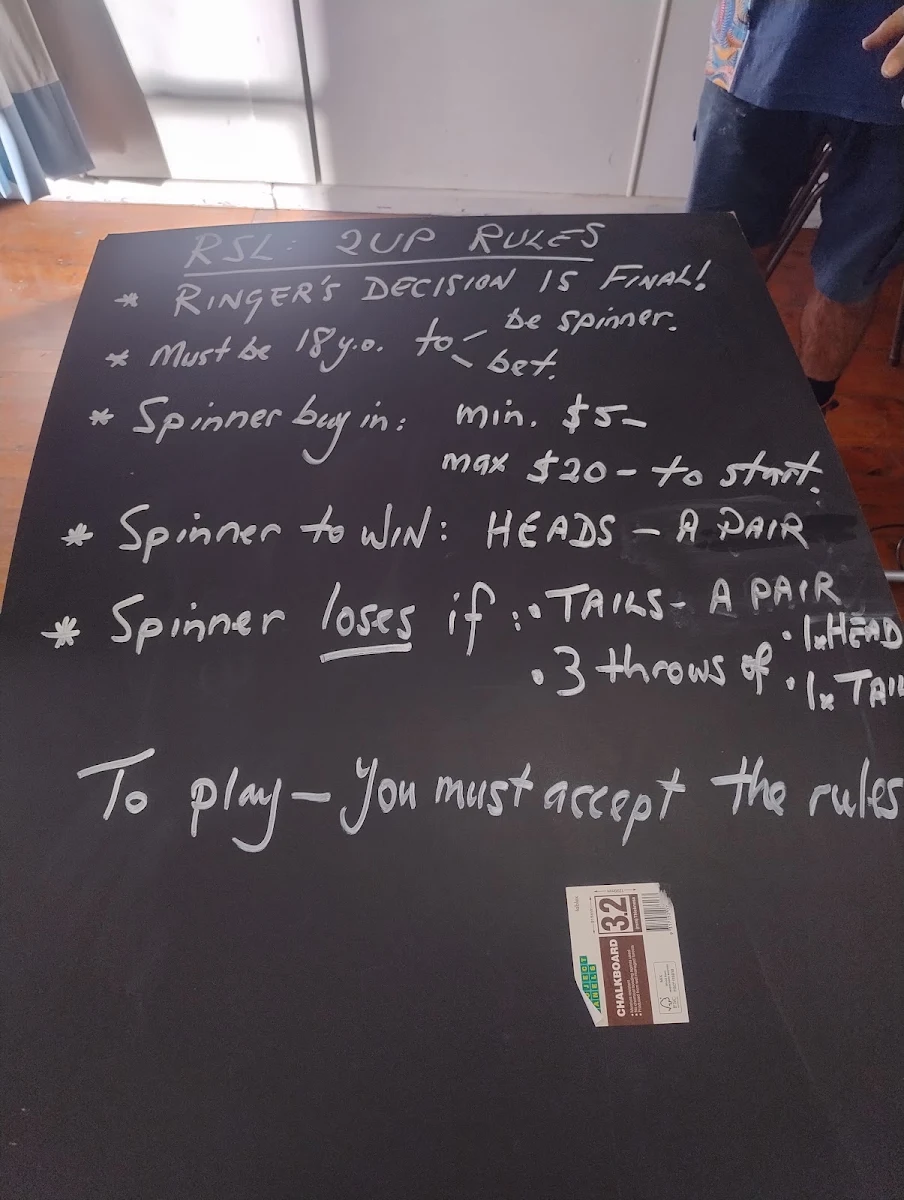 RSL: 2UP RULES
* RINGER'S DECISION IS FINAL!
* Must be 18 y.o. to - be spinner.
- bet.
* Spinner buy in: min. $5-
max $20- to start.
* Spinner to WIN: HEADS - A PAIR
* Spinner loses if: • TAILS - A PAIR
• 3 throws of • 1xHEAD
• 1x TAIL
To play - You must accept the rules
3.2
CHALKBOARD